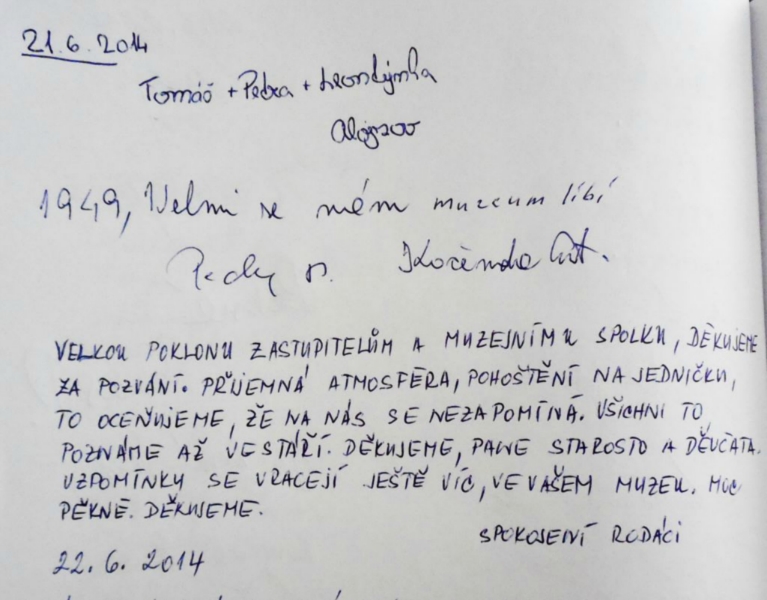 21.6.2014
Tomáš + Petra + Leontýnka
Alojzov
1949, Velmi se mém muzeum líbí
VELKOU POKLONU ZASTUPITELŮM A MUZEJNÍMU SPOLKU, DĚKUJEME
ZA POZVÁNÍ. PŘÍJEMNÁ ATMOSFÉRA, POHOŠTĚNÍ NA JEDNIČKU,
TO OCEŇUJEME, ŽE NA NÁS SE NEZAPOMÍNÁ. VŠICHNI TO
POZNÁME AŽ VE STÁŘÍ. DĚKUJEME, PANE STAROSTO A DĚVČATA.
VZPOMÍNKY SE VRACEJÍ JEŠTĚ VÍC, VE VAŠEM MUZEU. MOC
PĚKNÉ. DĚKUJEME.
SPOKOJENÍ RODÁCI
22.6.2014